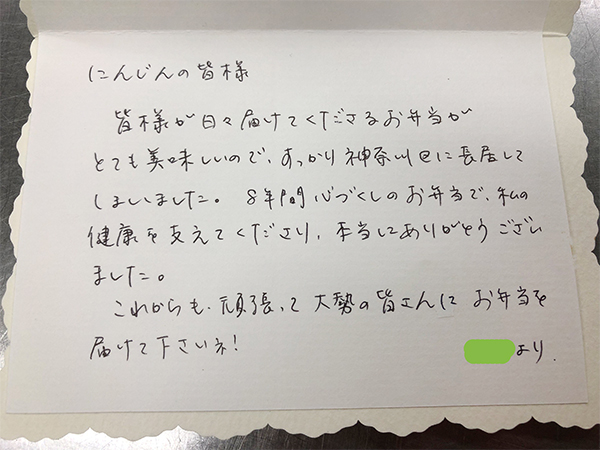 にんじんの皆様
皆様が日々届けてくださるお弁当が
とても美味しいので、すっかり神奈川区に長居して
しまいました。8年間心づくしのお弁当で、私の
健康を支えてくださり、本当にありがとうござい
ました。
これからも頑張って大勢の皆さんにお弁当を
届けて下さいネ!
より.